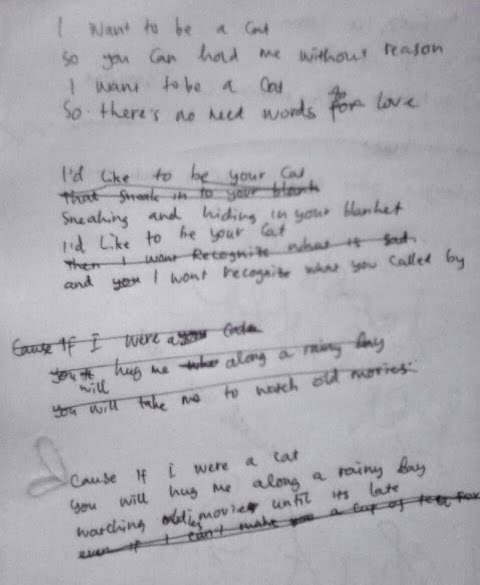 I want to be a cat
So you can hold me without reason
I want to be a cat
So there's no need words for love
I'd Like to be your Cat
That sneak in to your blank
Sneaking and hiding in your blanket
I'd Like to be your Cat
Then I wont Recognize what is sad
and you I wont recognize what you called by
Cause If I were a you Cat
you hug me along a rainy day
will
you will take me to watch old movies
Cause If I were a cat
you will hug me along a rainy day
watching oldies movie until its late
even if I can't make you a cup of tea for